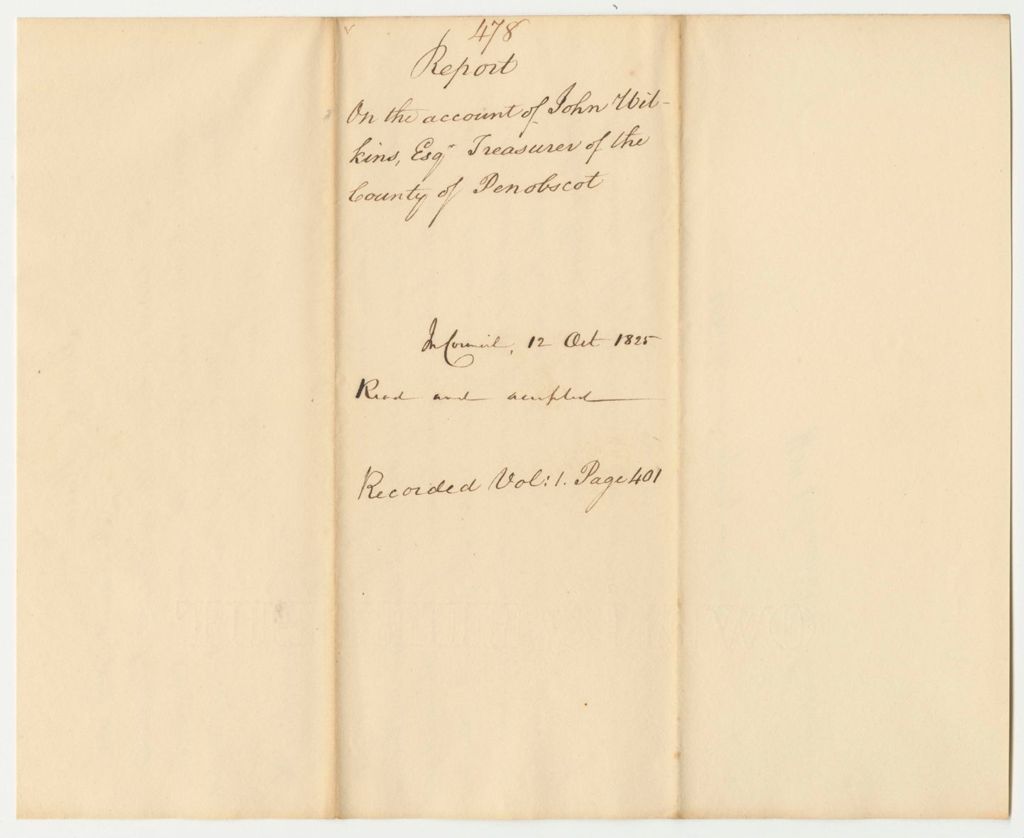 478
Report
On the account of John Wil-
kins, Esqr Treasurer of the
County of Penobscot
In Council, 12 Oct 1825
Read and accepted
Recorded Vol: 1. Page 401